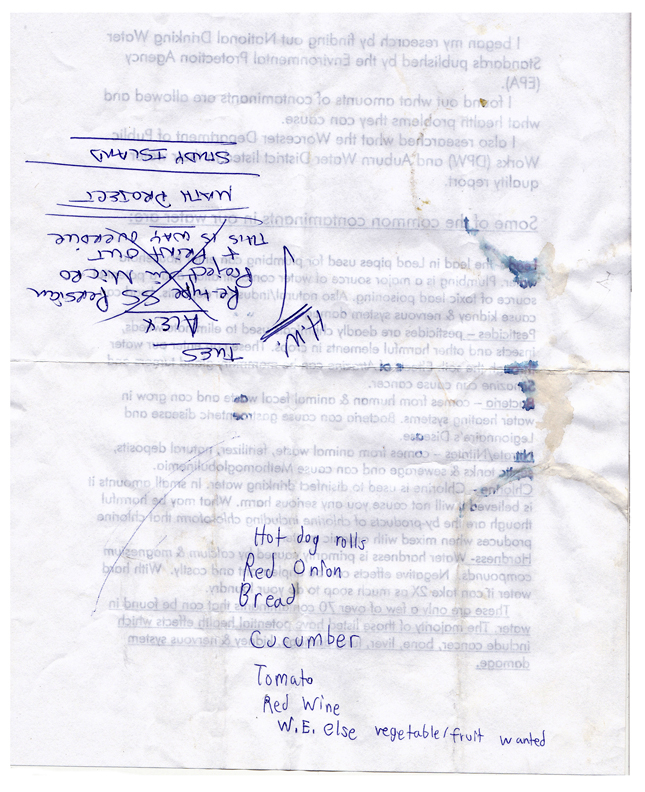 TUES
ALEX
H.W.
Re-type SS Persian
Project in Micro
+ Print out
THIS IS WAY OVERDUE
MATH PROJECT
STUDY ISLAND
Hot dog rolls
Red Onion
Bread
Cucumber
Tomato
Red Wine
W.E. else vegetable/fruit wanted
I began my research by finding out National Drinking Water
Standards published by the Environmental Protection Agency
(EPA).
I found out what amounts of contaminants are allowed and
what health problems they can cause.
I also researched what the Worcester Department of Public
Works (DPW) and Auburn Water District listed
quality report.
Some of the common contaminants in our water are:
the lead in Lead pipes used for plumbing can
Plumbing is a major source of water
source of toxic lead poisoning. Also natural/
cause kidney & nervous system
Pesticides – pesticides are deadly used to eliminate weeds,
insects and other harmful elements in water
can cause cancer.
Bacteria – comes from human & animal fecal waste and can grow in
water heating systems. Bacteria can cause gastroenteric disease and
Legionnaire's Disease.
Nitrate/Nitrites – comes from animal waste, fertilizer, natural deposits,
septic tanks & sewerage and can cause Methomoglobulinemia.
Chlorine - Chlorine is used to disinfect drinking water. In small amounts it
is believed it will not cause you any serious harm. What may be harmful
though are the by-products of chlorine including chloroform that chlorine
produces when mixed with
Hardness- Water hardness is primarily caused by calcium & magnesium
compounds. Negative effects and costly. With hard
water it can take 2X as much soap to do your laundry.
These are only a few of over 70 contaminants that can be found in
water. The majority of those listed have potential health effects which
include cancer, bone, liver, kidney & nervous system
damage.